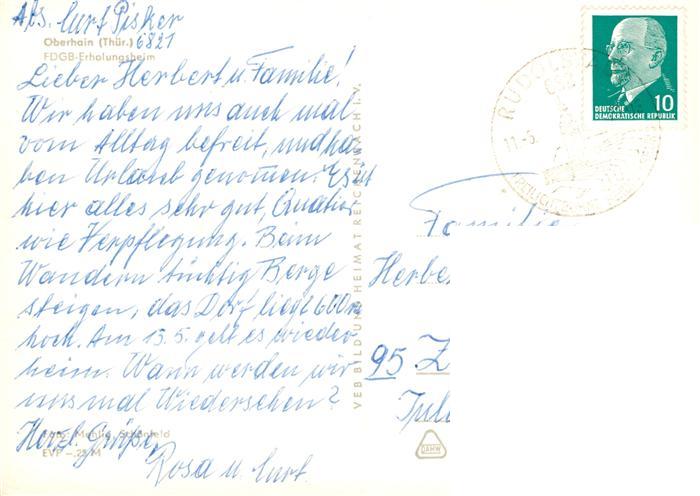 Abs. Curt Pisker
6821
Oberhain (Thür.)
FDGB-Erholungsheim
Lieber Herbert u. Familie!
Wir haben uns auch mal
vom Alltag befreit, und ha
ben Urlaub genommen. Es ist
hier alles sehr gut, Quatier
wie Verpflegung. Beim
Wandern tüchtig Berge
steigen, das Dorf liegt 600 m
hoch. Am 13.5. geht es wieder
heim. Wann werden wir
uns mal Wiedersehen?
Herzl. Grüße,
Rosa u. Curt.
Schönfeld
EVP -,25 M
VEB BILD UND HEIMAT REICHENBACH I. V.
DEUTSCHE
DEMOKRATISCHE REPUBLIK
10
RUDOLST
11.-5.
Familie
Herber
95 Z
DAHW